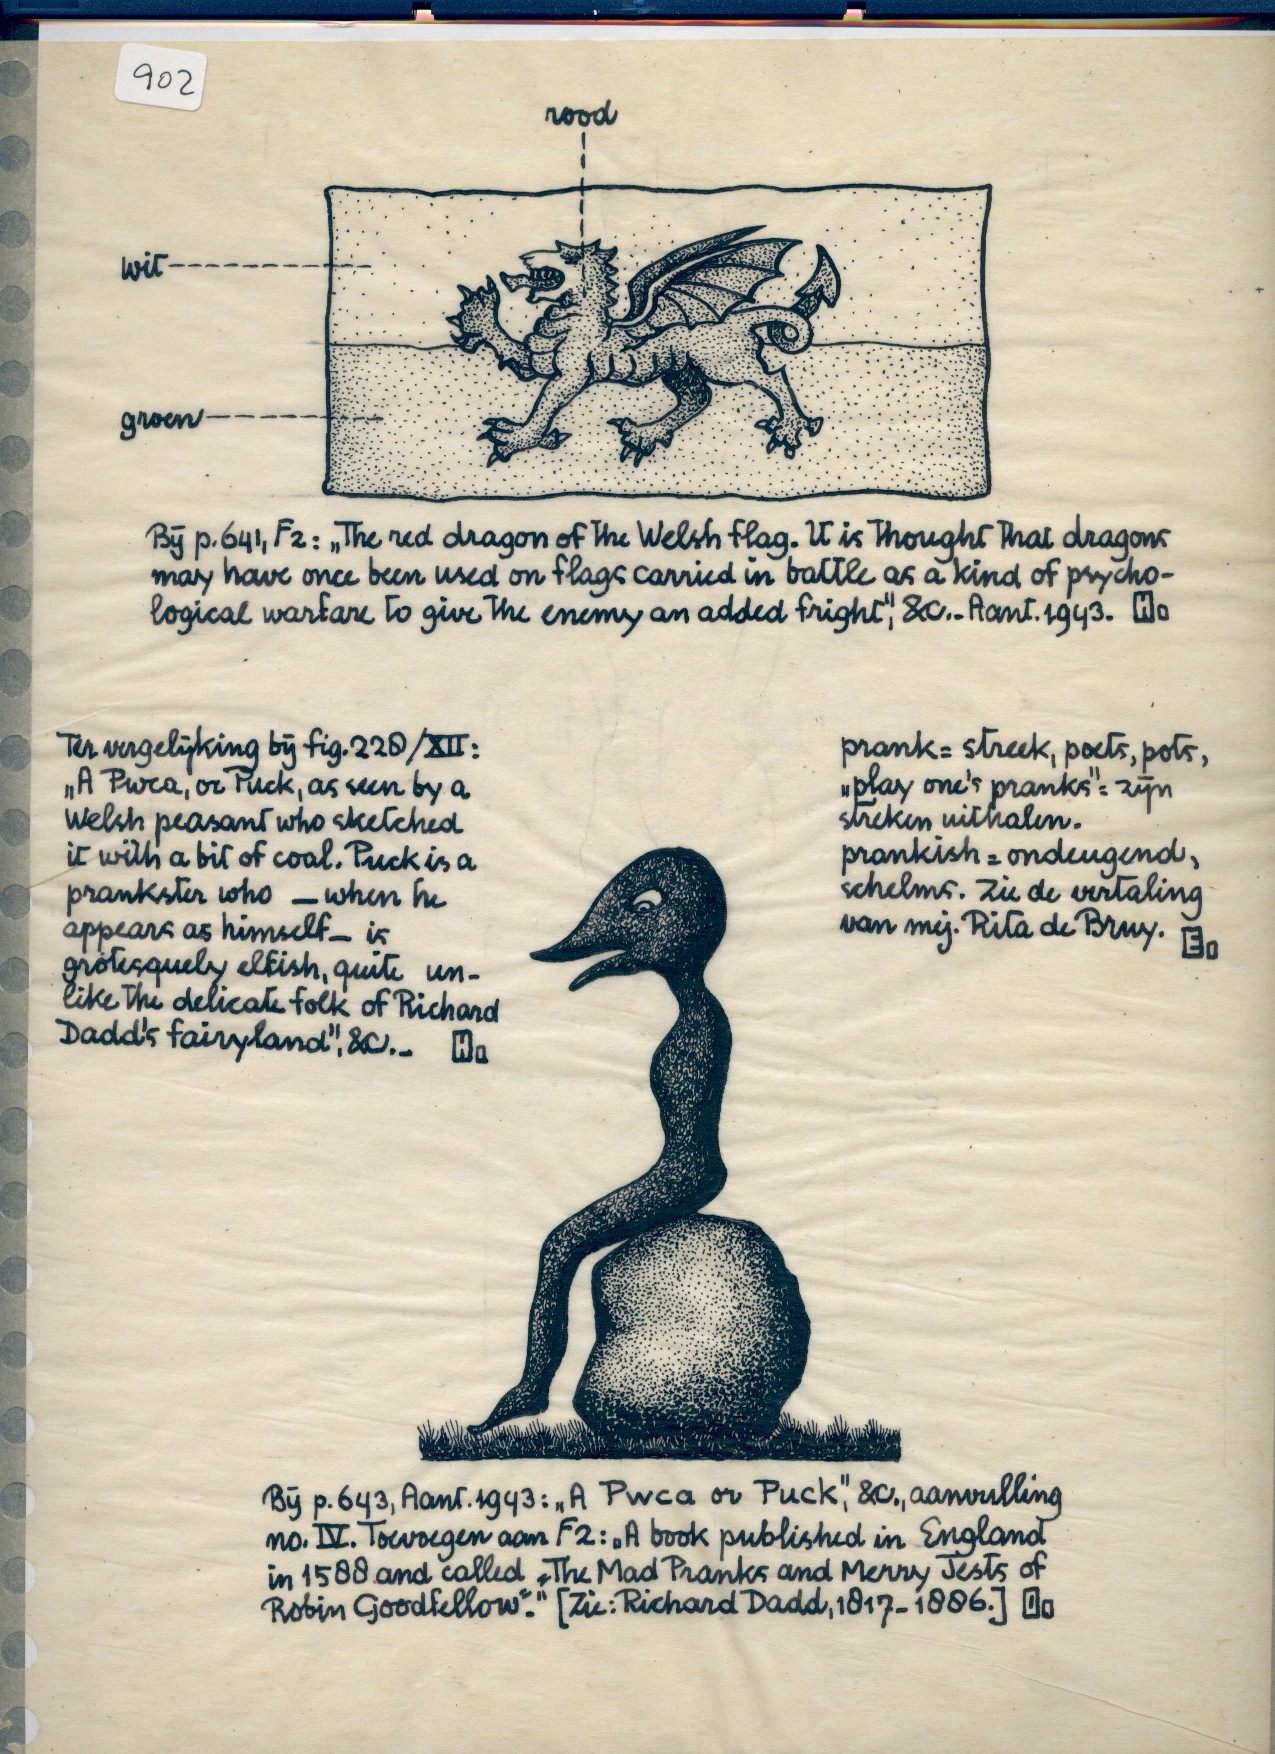 902
rood
wit
groen
Bij p. 641, F2: „The red dragon of the Welsh flag. It is thought that dragons
may have once been used on flags carried in battle as a kind of psycho-
logical warfare to give the enemy an added fright", &c.- Aant. 1943. H.
Ter vergelijking bij fig. 228/XII:
„A Pwca, or Puck, as seen by a
Welsh peasant who sketched
it with a bit of coal. Puck is a
prankster who – when he
appears as himself – is
grotesquely elfish, quite un-
like the delicate folk of Richard
Dadd's fairyland", &c.- H.
prank = streek, poets, pots,
„play one's pranks" = zijn
streken uithalen.
prankish = ondeugend,
schelms. Zie de vertaling
van mej. Rita de Bruy. E.
Bij p. 643, Aant. 1943: „A Pwca or Puck", &c., aanvulling
no. IV. Toevoegen aan F2: „A book published in England
in 1588 and called „The Mad Pranks and Merry Jests of
Robin Goodfellow"." [Zie: Richard Dadd, 1817-1886.]